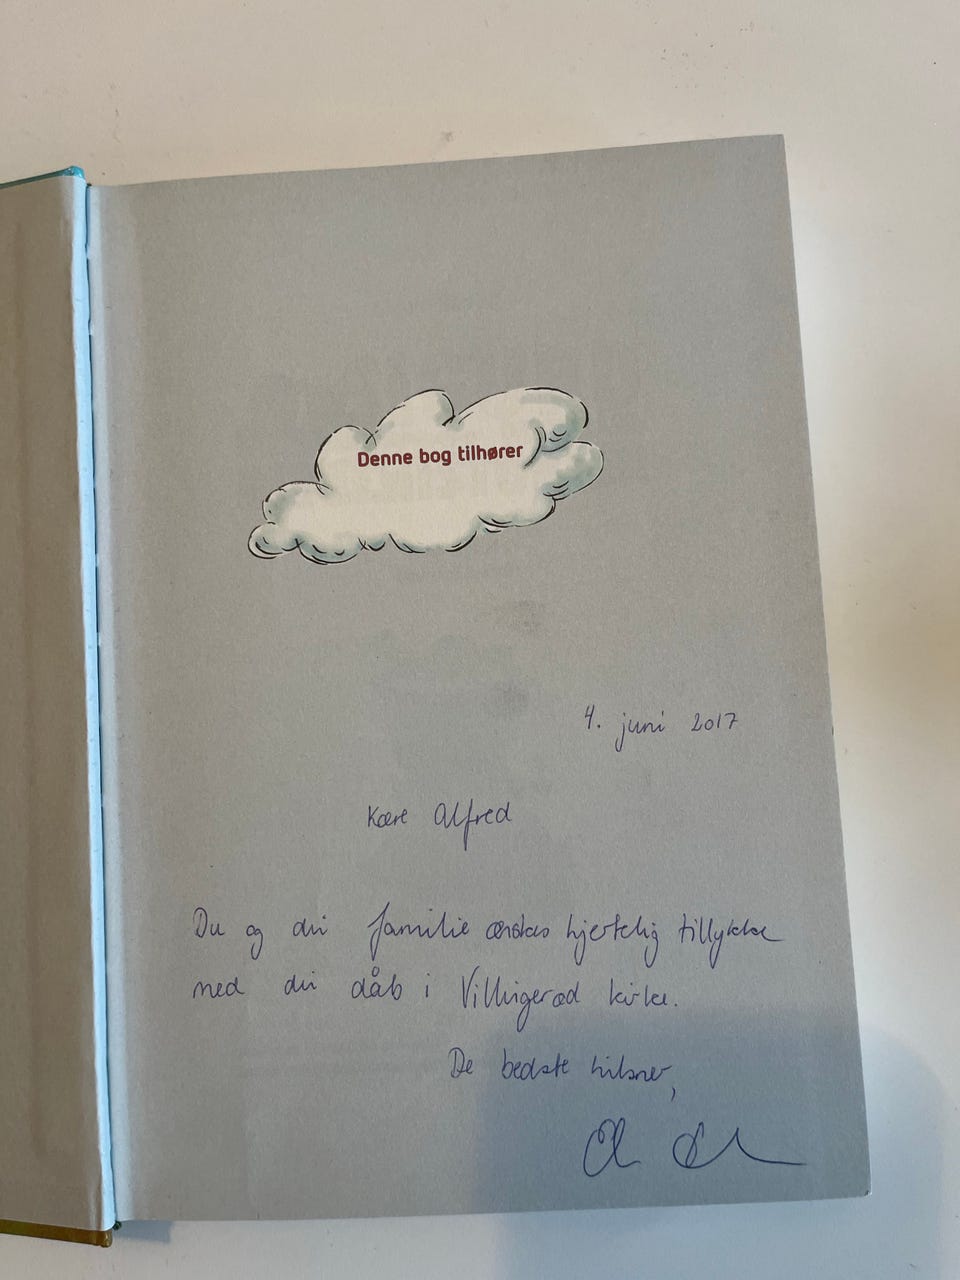 Denne bog tilhører
4. juni 2017
Kære Alfred
Du og din familie ønskes hjertelig tillykke
med din dåb i Villingerød kirke.
De bedste hilsner,